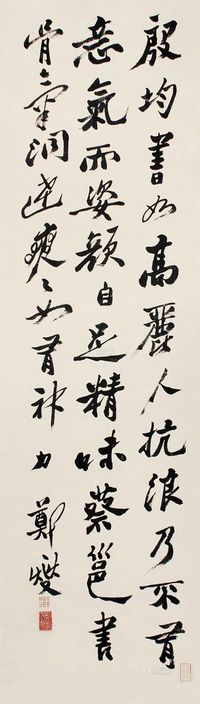 殷均書如高麗人抗浪乃不有
意氣而姿顔自足精味蔡邕書
骨氣洞達爽爽如有神力 鄭燮